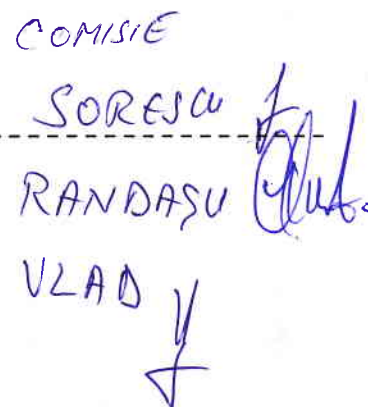 COMISIE
SORESCU
RANDAȘU
VLAD